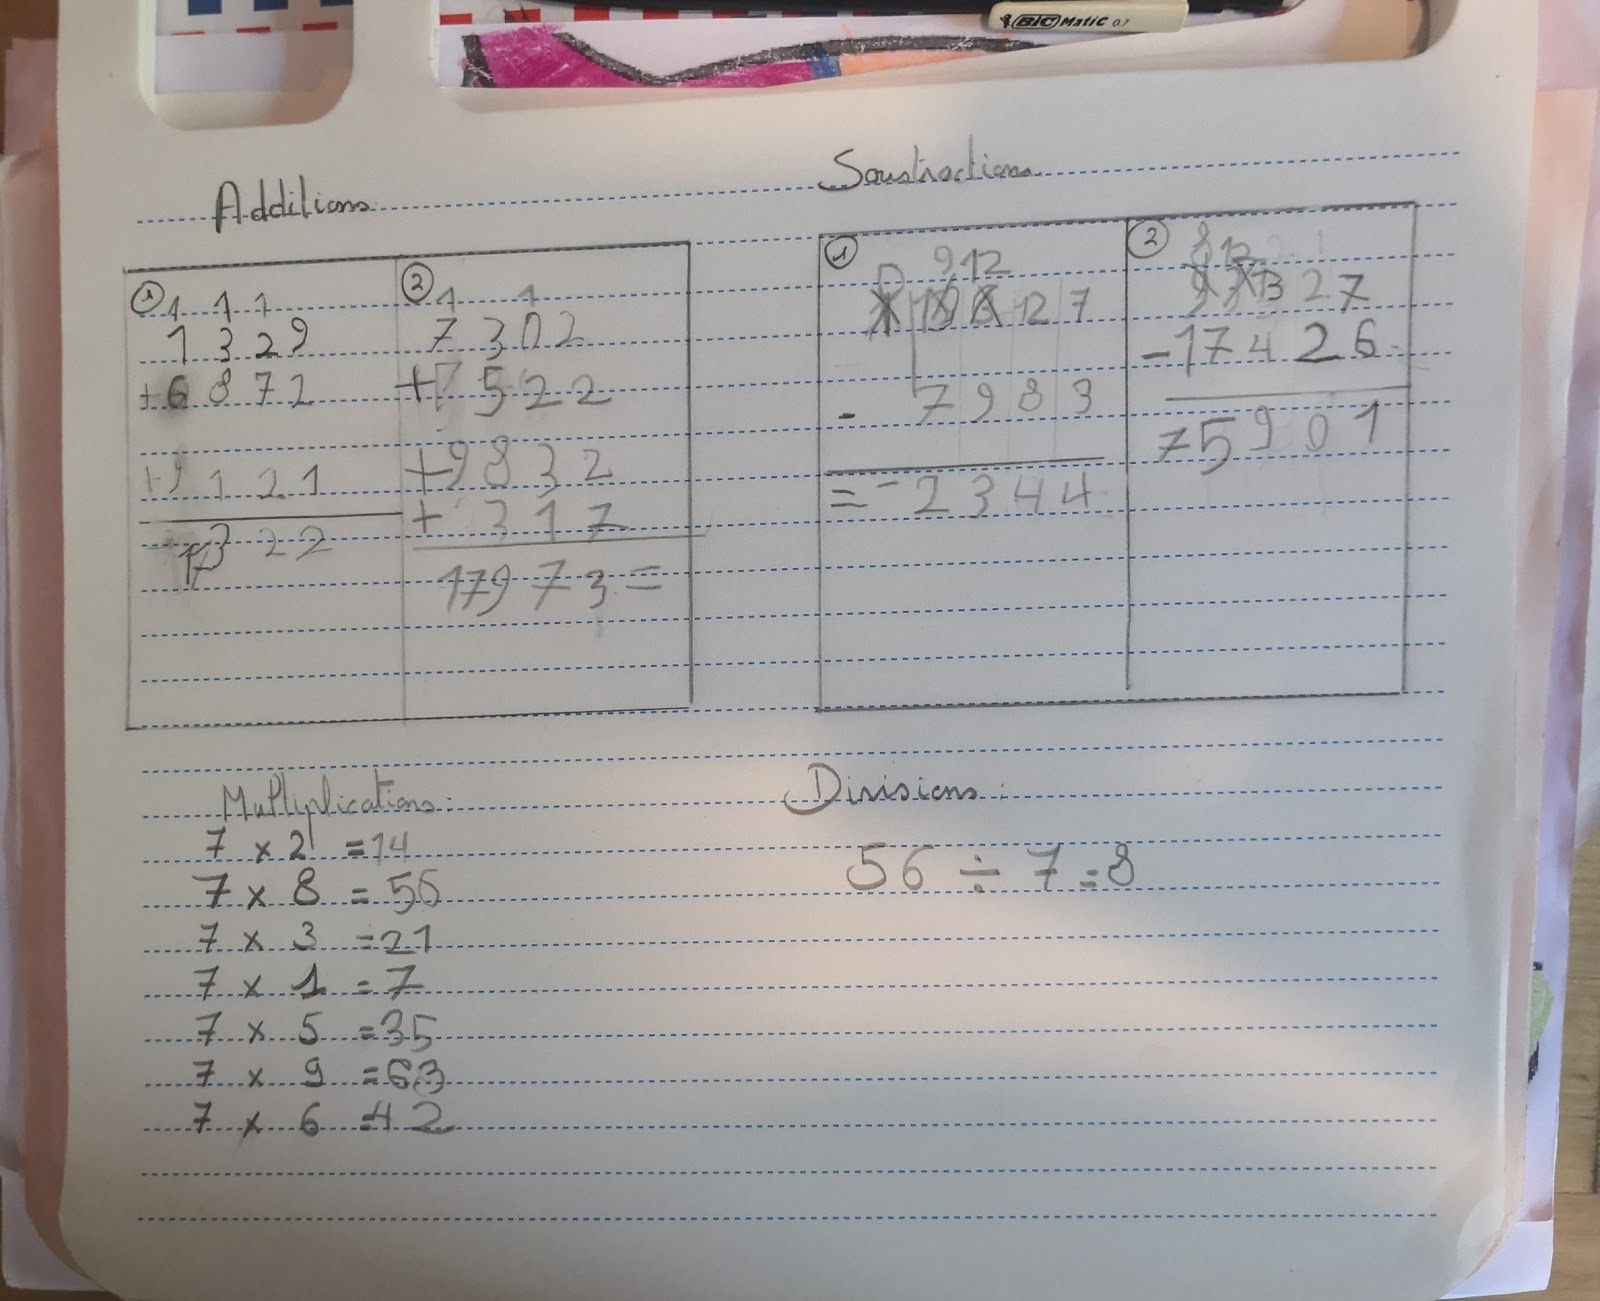 BIC Matic 0.7
Additions
Soustractions
1
1 1 1
1 3 2 9
+ 6 8 7 2
+ 9 1 2 1
17 3 2 2
2
1 1
7 3 0 2
+ 5 2 2
+ 9 8 3 2
+ 3 1 7
17 9 7 3 =
1
9 12
12 7
- 7 9 8 3
= - 2 3 4 4
2
8 12
13 2 7
- 1 7 4 2 6
7 5 9 0 1
Multiplications:
7 x 2 = 14
7 x 8 = 56
7 x 3 = 21
7 x 1 = 7
7 x 5 = 35
7 x 9 = 63
7 x 6 = 42
Divisions:
56 ÷ 7 = 8